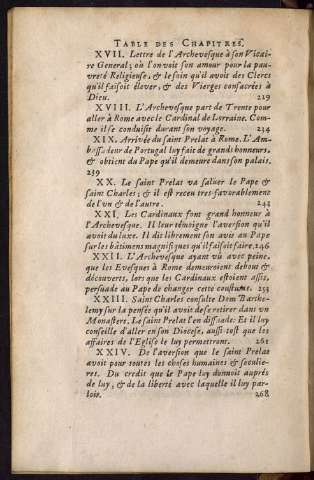 TABLE DES CHAPITRES.
XVII. Lettre de l'Archevesque à son Vicai-
re General; où l'on voit son amour pour la pau-
vreté Religieuse, & le soin qu'il avoit des Clercs
qu'il faisoit élever, & des Vierges consacrées à
Dieu. 219
XVIII. L'Archevesque part de Trente pour
aller à Rome avec le Cardinal de Lorraine. Com-
me il se conduisit durant son voyage. 234
XIX. Arrivée du saint Prelat à Rome. L'Am-
bassadeur de Portugal luy fait de grands honneurs,
& obtient du Pape qu'il demeure dans son palais.
239
XX. Le saint Prelat va saluer le Pape &
saint Charles; & il est receu tres-favorablement
de l'un & de l'autre. 244
XXI. Les Cardinaux font grand honneur à
l'Archevesque. Il leur témoigne l'aversion qu'il
avoit du luxe. Il dit librement son avis au Pape
sur les bâtimens magnifiques qu'il faisoit faire. 246
XXII. L'Archevesque ayant vû avec peine,
que les Evesques à Rome demeuroient debout &
découverts, lors que les Cardinaux estoient assis,
persuade au Pape de changer cette coustume. 253
XXIII. Saint Charles consulte Dom Barthe-
lemy sur la pensée qu'il avoit de se retirer dans un
Monastere. Le saint Prelat l'en dissuade: Et il luy
conseille d'aller en son Diocese, aussi-tost que les
affaires de l'Eglise le luy permettront. 261
XXIV. De l'aversion que le saint Prelat
avoit pour toutes les choses humaines & seculie-
res. Du credit que le Pape luy donnoit auprés
de luy, & de la liberté avec laquelle il luy par-
loit. 268